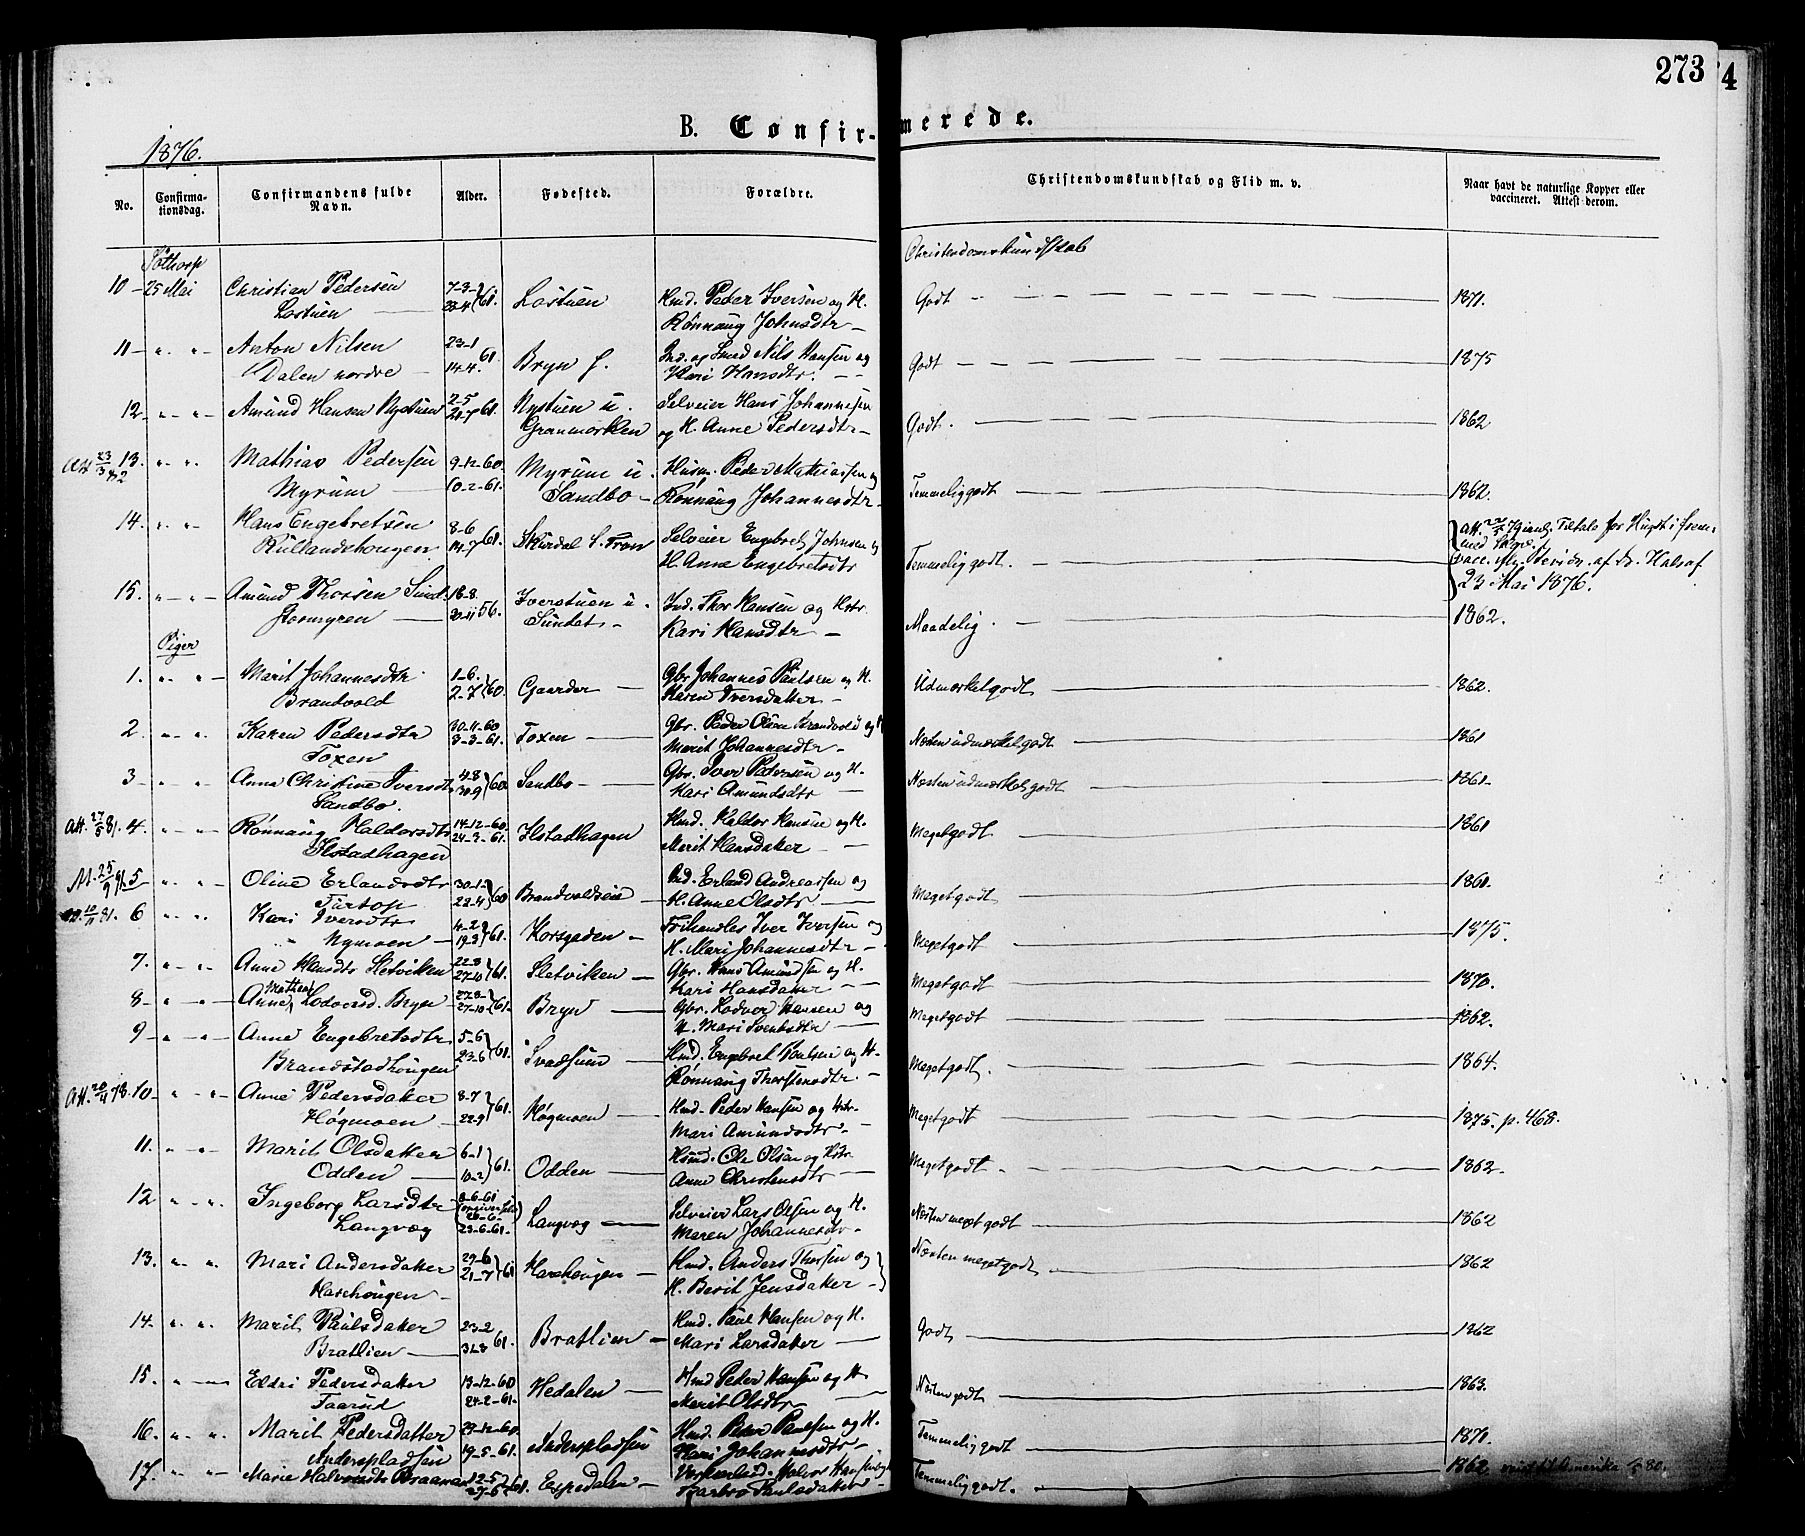 273
4
B. Confirmerede.
1876.
No.
Confirmationsdag.
Confirmandens fulde Navn.
Alder.
Fødested.
Forældre.
Christendomskundskab og Flid m. v.
Naar havt de naturlige Kopper eller vaccineret. Attest derom.
Christendomskundskab
10 – 25 Mai Christian Pedersen 7-3- 61. Lostuen Hmd. Peder Iversen og H. Godt 1871.
Lostuen Rønnaug Johnsdtr
11 – " " – Anton Nilsen 23-1 61 Bryn Ind. og Smed Nils Hansen og Godt 1875
Dalen nordre – 14-4. Kari Hansdtr.
12 – " " – Amund Hansen Nystuen 2-5 61. Nystuen u. Selveier Hans Johannesen Godt. 1862
21-7 Granmorken og H. Anne Pedersdtr
13. " " Mathias Pedersen 9-12-60 Myrum u. Husm. Peder Mathiassen og Temmelig godt 1862.
Myrum 10-2-61. Sandbo – Rønnaug Johannesdtr
14. " " Hans Engebretsen 8-6 61. Skurdal S. Fron Selveier Engebret Johnsen og Temmelig godt.
Rullandshougen 14-7 H. Anne Engebretsdtr
23 Mai 1876.
15. " " Amund Thorsen Sund- 18-8. 56. Iverstuen u. Ind. Thor Hansen og Hstr. Maadelig 1862.
30-11 Sundet – Kari Hansdtr –
Piger
1. " " Marit Johannesdtr 1-6. 60. Gaarder Gbr. Johannes Paulsen og H. Udmærket godt 1862.
Brandvold 2-7 Karen Iversdatter –
2. " " Karen Pedersdtr 30-11-60 Toxen Gbr. Peder Olsen Brandvold og H Næsten udmærket godt 1861
Toxen 3-3-61. Marit Johannesdtr –
3 – " " Anne Christine Iversdt. 4-8 60 Sandbo Gbr. Iver Pedersen og H. Næsten udmærket godt 1861
Sandbo. 30-9 Kari Amundsdtr
Att. 27/5 81. 4. " " Rønnaug Haldorsdtr 14-12-60 Ilstadhagen Hmd. Haldor Hansen og H. Meget godt 1861
Ilstadhagen 24-3-61. Marit Hansdatter
M. 25/9 91. 5 " " Oline Erlandsdtr 30-1- 60 Brandvoldseie Ind. Erland Andreassen og Meget godt 1861.
Turtop 22-4 H. Anne Olsdtr
81. 6 " " Kari Iversdtr 4-2 61. Korsgaden – Iver Iversen og Meget godt 1875.
Nymoen 19-3 H. Mari Johannesdtr –
7. " " Anne Hansdtr Sletviken 22-8 61. Sletviken Gbr. Hans Amundsen og H. Meget godt 1870.
27-10 Kari Hansdatter
8 – " " Anne Mathea Lodversd. Bryn 27-8- 61. Bryn Gbr. Lodver Hansen og Meget godt 1862.
27-10 H. Mari Svendsdtr
9 – " " Anne Engebretsdtr 5-6 61. Svadsum Hmd. Engebret Paulsen og H. Meget godt. 1864.
Brandstadhougen 23-6 Rønnaug Thorstensdtr.
Att. 20/4 78. 10 – " " Anne Pedersdatter 8-7 61. Høgmoen Hmd. Peder Hansen og Hstr. Meget godt 1875. p. 468.
Høgmoen 22-9 Mari Amundsdtr
11. " " Marit Olsdatter 6-1 61. Odden Husmd. Ole Olsen og Hstr. Meget godt 1862.
Odden 10-2 Anne Christensdtr
12 " " Ingeborg Larsdtr 8-6-61 Langvæg Selveier Lars Olsen og H. Næsten meget godt 1862
Langvæg 23-6-61. Maren Johannesdtr
13. " " Mari Andersdatter 29-6 61 Harehougen – Hmd. Anders Thorsen og Næsten meget godt 1862
Harehougen – 21-7 H. Berit Jensdatter
14 – " " Marit Paulsdatter 23-2 61. Bratlien Hmd. Paul Hansen og H. Godt 1862
Bratlien 31-3 Mari Larsdatter
15. " " Eldri Pedersdatter 13-12-60 Hedalen Hmd Peder Hansen og H Næsten godt 1863.
Taarud 24-2-61. Marit Olsdtr
16. " " Marit Pedersdatter 29-12-60 Anderspladsen Hmd. Peder Paulsen og H. Temmelig godt 1871.
Anderspladsen 19-5-61. Kari Johannesdtr
17. " " Marie Halvorsdtr Braanaas 12-5 61. Espedalen Halvor Hansen Temmelig godt. 1862 til Amerika 80.
29-6 Barbro Paulsdatter